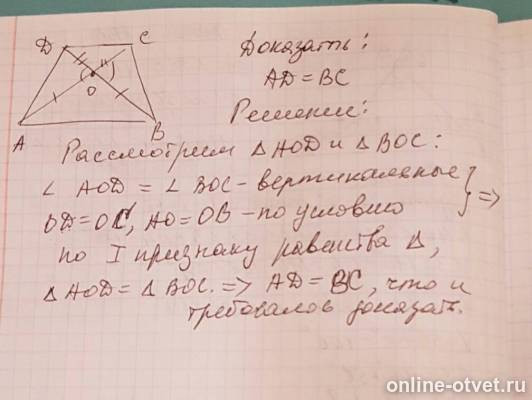 D C
O
A B
Доказать:
AD = BC
Решение:
Рассмотрим Δ AOD и Δ BOC:
∠ AOD = ∠ BOC - вертикальные
OD = OC, AO = OB - по условию } =>
по I признаку равенства Δ,
Δ AOD = Δ BOC. => AD = BC, что и
требовалов доказать.
online-otvet.ru